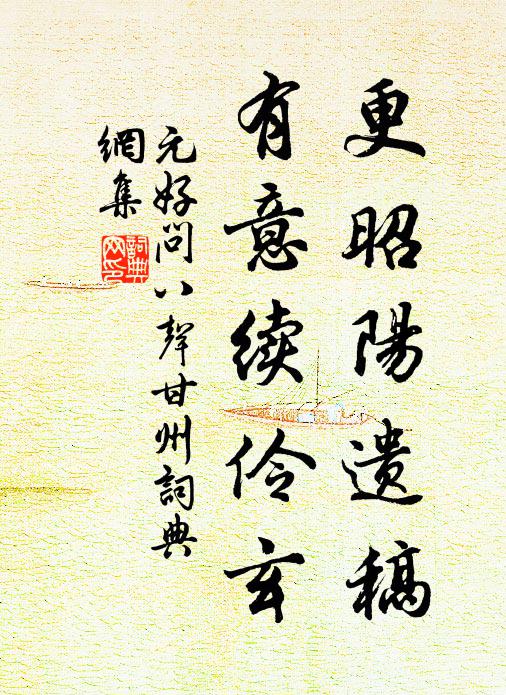 更昭陽遺稿
有意續伶玄
元好問八聲甘州詞典
網集
詞典
网印